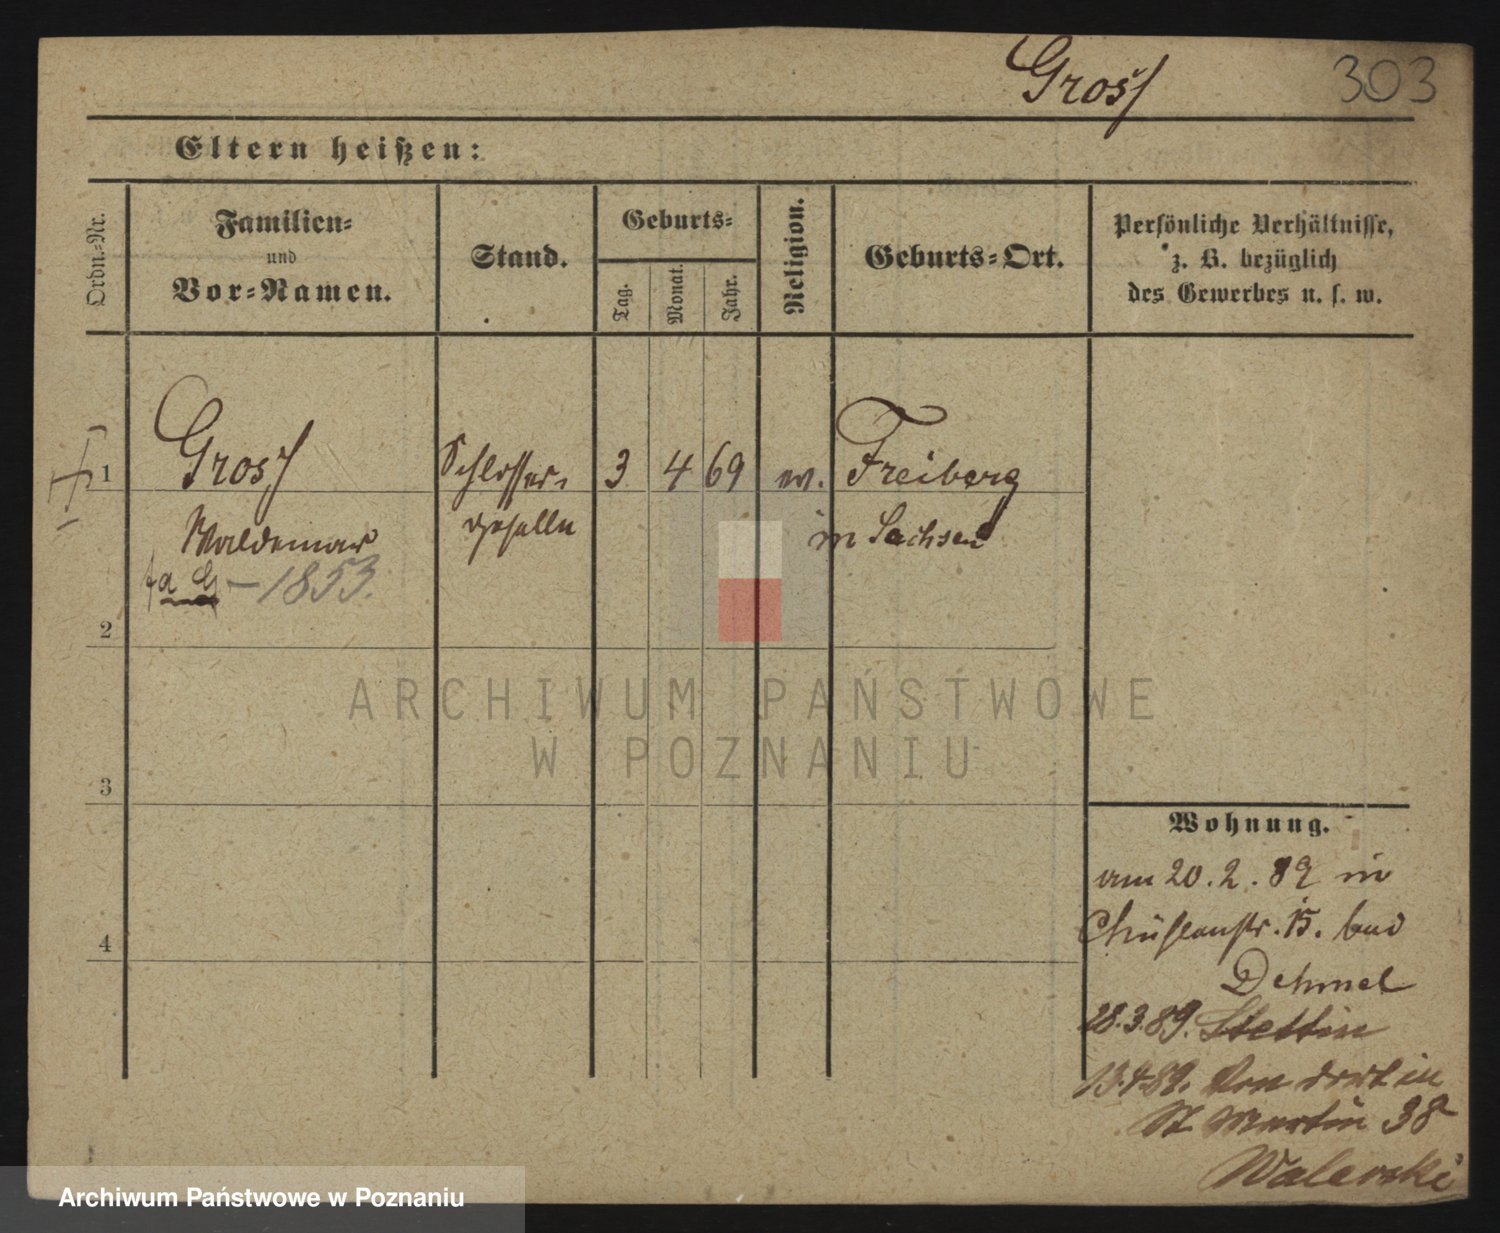 Groß 303
Eltern heißen:
Ordn.-Nr.
Familien-
und
Vor-Namen.
Stand.
Geburts-
Tag.
Monat.
Jahr.
Religion.
Geburts-Ort.
Persönliche Verhältnisse,
z. B. bezüglich
des Gewerbes u. s. w.
1 Groß Schlosser- 3 4 69 ev. Freiberg
Waldemar geselle in Sachsen
1853.
2
3
4
Wohnung.
am 20.2.89 in
15. bei
Dehmel
28.3.89. Stettin
13.4.89. Von dort in
St. Martin 38
Walerski
ARCHIWUM PAŃSTWOWE
W POZNANIU
Archiwum Państwowe w Poznaniu